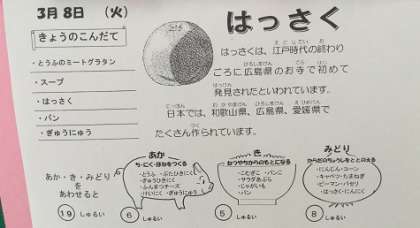 3月 8日 (火)
はっさく
きょうのこんだて
・とうふのミートグラタン
・スープ
・はっさく
・パン
・ぎゅうにゅう
はっさくは、江戸時代の終わり
ごろに広島県のお寺で初めて
発見されたといわれています。
日本では、和歌山県、広島県、愛媛県で
たくさん作られています。
あか・き・みどり
をあわせると
19 しゅるい
あか
ち・にく・ほねをつくる
・とうふ ・ぶたひきにく
・ぎゅうひきにく
・ふんまつチーズ
・けいにく ・ぎゅうにゅう
6 しゅるい
き
ねつやちからのもとになる
・こむぎこ ・パンこ
・サラダあぶら
・じゃがいも
・パン
5 しゅるい
みどり
からだのちょうしをととのえる
・にんじん ・コーン
・キャベツ ・たまねぎ
・ピーマン ・パセリ
・はっさく ・にんにく
8 しゅるい